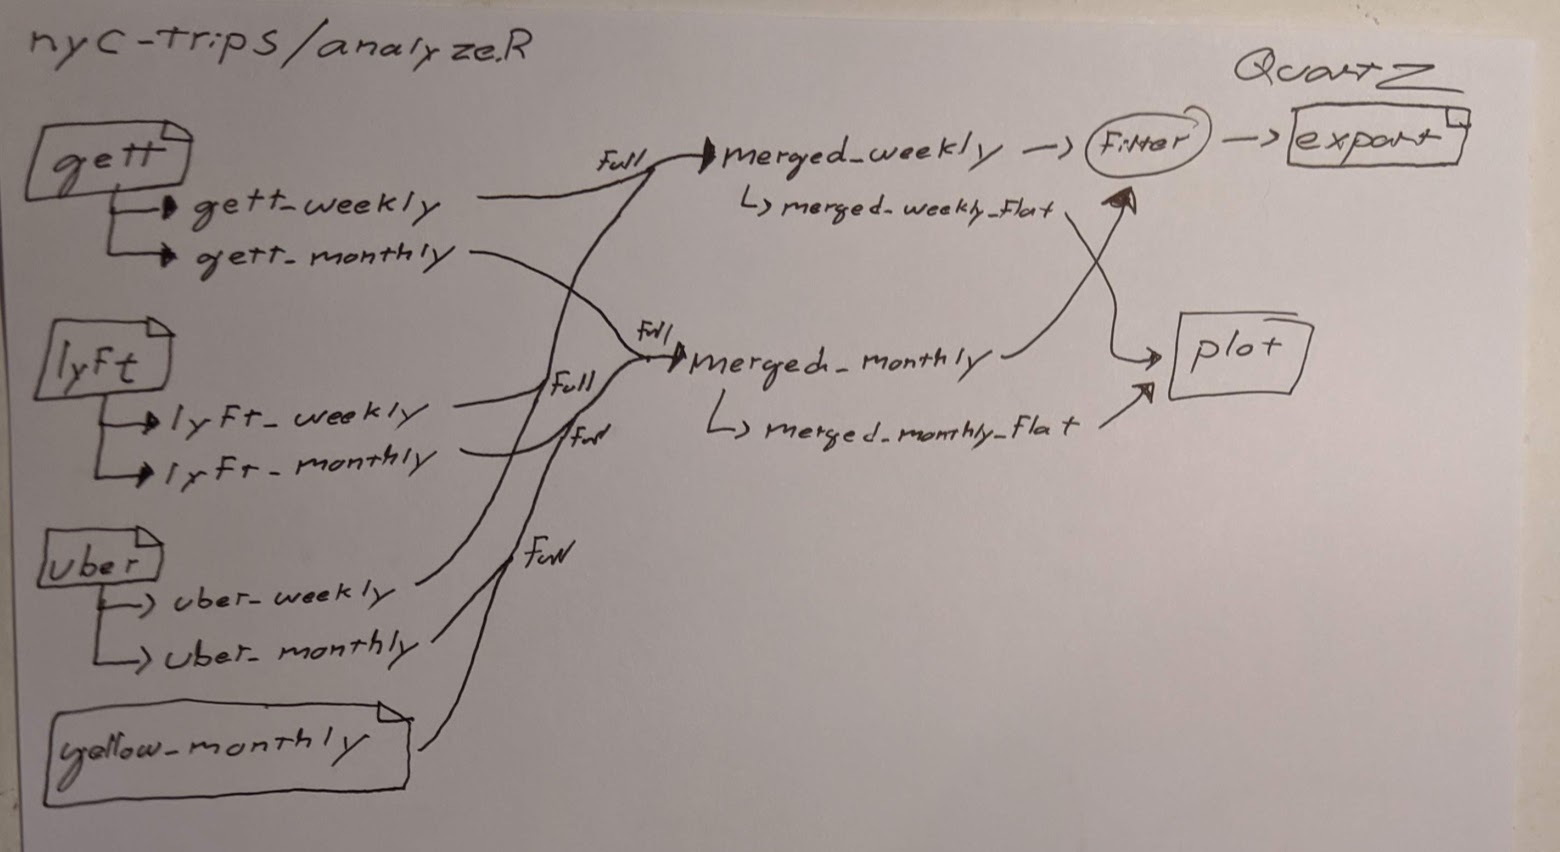 nyc-trips/analyze.R
Quartz
gett
gett_weekly
gett_monthly
lyft
lyft_weekly
lyft_monthly
uber
uber_weekly
uber_monthly
yellow_monthly
Full
Full
Full
Full
Full
merged_weekly
merged_weekly_flat
merged_monthly
merged_monthly_flat
Filter
export
plot